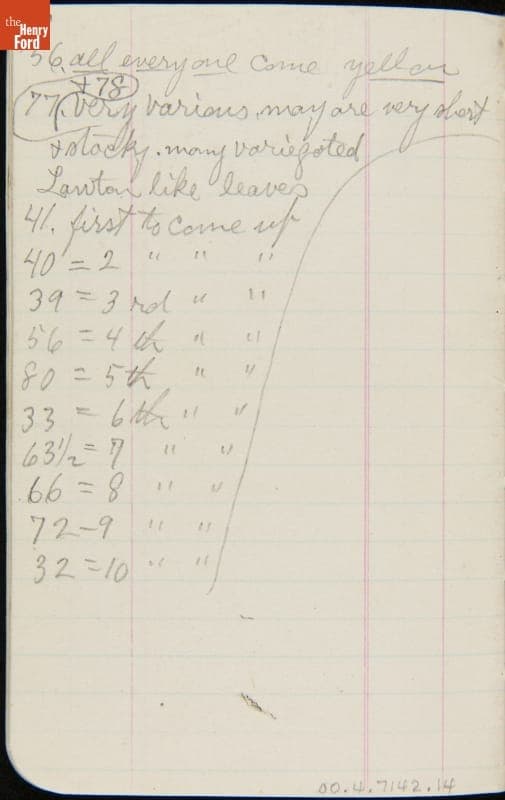 the
Henry
Ford
56. all everyone come yellow
+ 78
77. Very various. may are very short
+ stocky. many variegated
Lawton like leaves
41. first to come up
40 = 2 " " "
39 = 3rd " "
56 = 4th " "
80 = 5th " "
33 = 6th " "
63½ = 7 " "
66 = 8 " "
72 - 9 " "
32 = 10 " "
00.4.7142.14